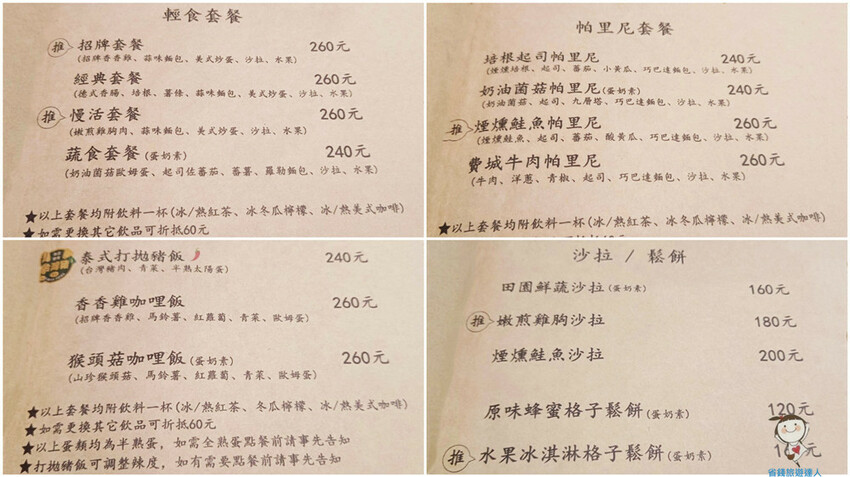 輕食套餐
推 招牌套餐 260元
(招牌香香雞、蒜味麵包、美式炒蛋、沙拉、水果)
經典套餐 260元
(德式香腸、培根、薯條、蒜味麵包、美式炒蛋、沙拉、水果)
推 慢活套餐 260元
(嫩煎雞胸肉、蒜味麵包、美式炒蛋、沙拉、水果)
蔬食套餐(蛋奶素) 240元
(奶油菌菇歐姆蛋、起司佐蕃茄、蕃薯、羅勒麵包、沙拉、水果)
★以上套餐均附飲料一杯(冰/熱紅茶、冰冬瓜檸檬、冰/熱美式咖啡)
★如需更換其它飲品可折抵60元
帕里尼套餐
培根起司帕里尼 240元
(煙燻培根、起司、蕃茄、小黃瓜、巧巴達麵包、沙拉、水果)
奶油菌菇帕里尼(蛋奶素) 240元
(奶油菌菇、起司、九層塔、巧巴達麵包、沙拉、水果)
推 煙燻鮭魚帕里尼 260元
(煙燻鮭魚、起司、蕃茄、酸黃瓜、巧巴達麵包、沙拉、水果)
費城牛肉帕里尼 260元
(牛肉、洋蔥、青椒、起司、巧巴達麵包、沙拉、水果)
★以上套餐均附飲料一杯(冰/熱紅茶、冰冬瓜檸檬、冰/熱美式咖啡)
泰式打拋豬飯 240元
(台灣豬肉、青菜、半熟太陽蛋)
香香雞咖哩飯 260元
(招牌香香雞、馬鈴薯、紅蘿蔔、青菜、歐姆蛋)
猴頭菇咖哩飯(蛋奶素) 260元
(山珍猴頭菇、馬鈴薯、紅蘿蔔、青菜、歐姆蛋)
★以上套餐均附飲料一杯(冰/熱紅茶、冬瓜檸檬、冰/熱美式咖啡)
★如需更換其它飲品可折抵60元
★以上蛋類均為半熟蛋，如需全熟蛋點餐前請事先告知
★打拋豬飯可調整辣度，如有需要點餐前請事先告知
沙拉 / 鬆餅
田園鮮蔬沙拉(蛋奶素) 160元
推 嫩煎雞胸沙拉 180元
煙燻鮭魚沙拉 200元
原味蜂蜜格子鬆餅(蛋奶素) 120元
推 水果冰淇淋格子鬆餅(蛋奶素)
省錢旅遊達人